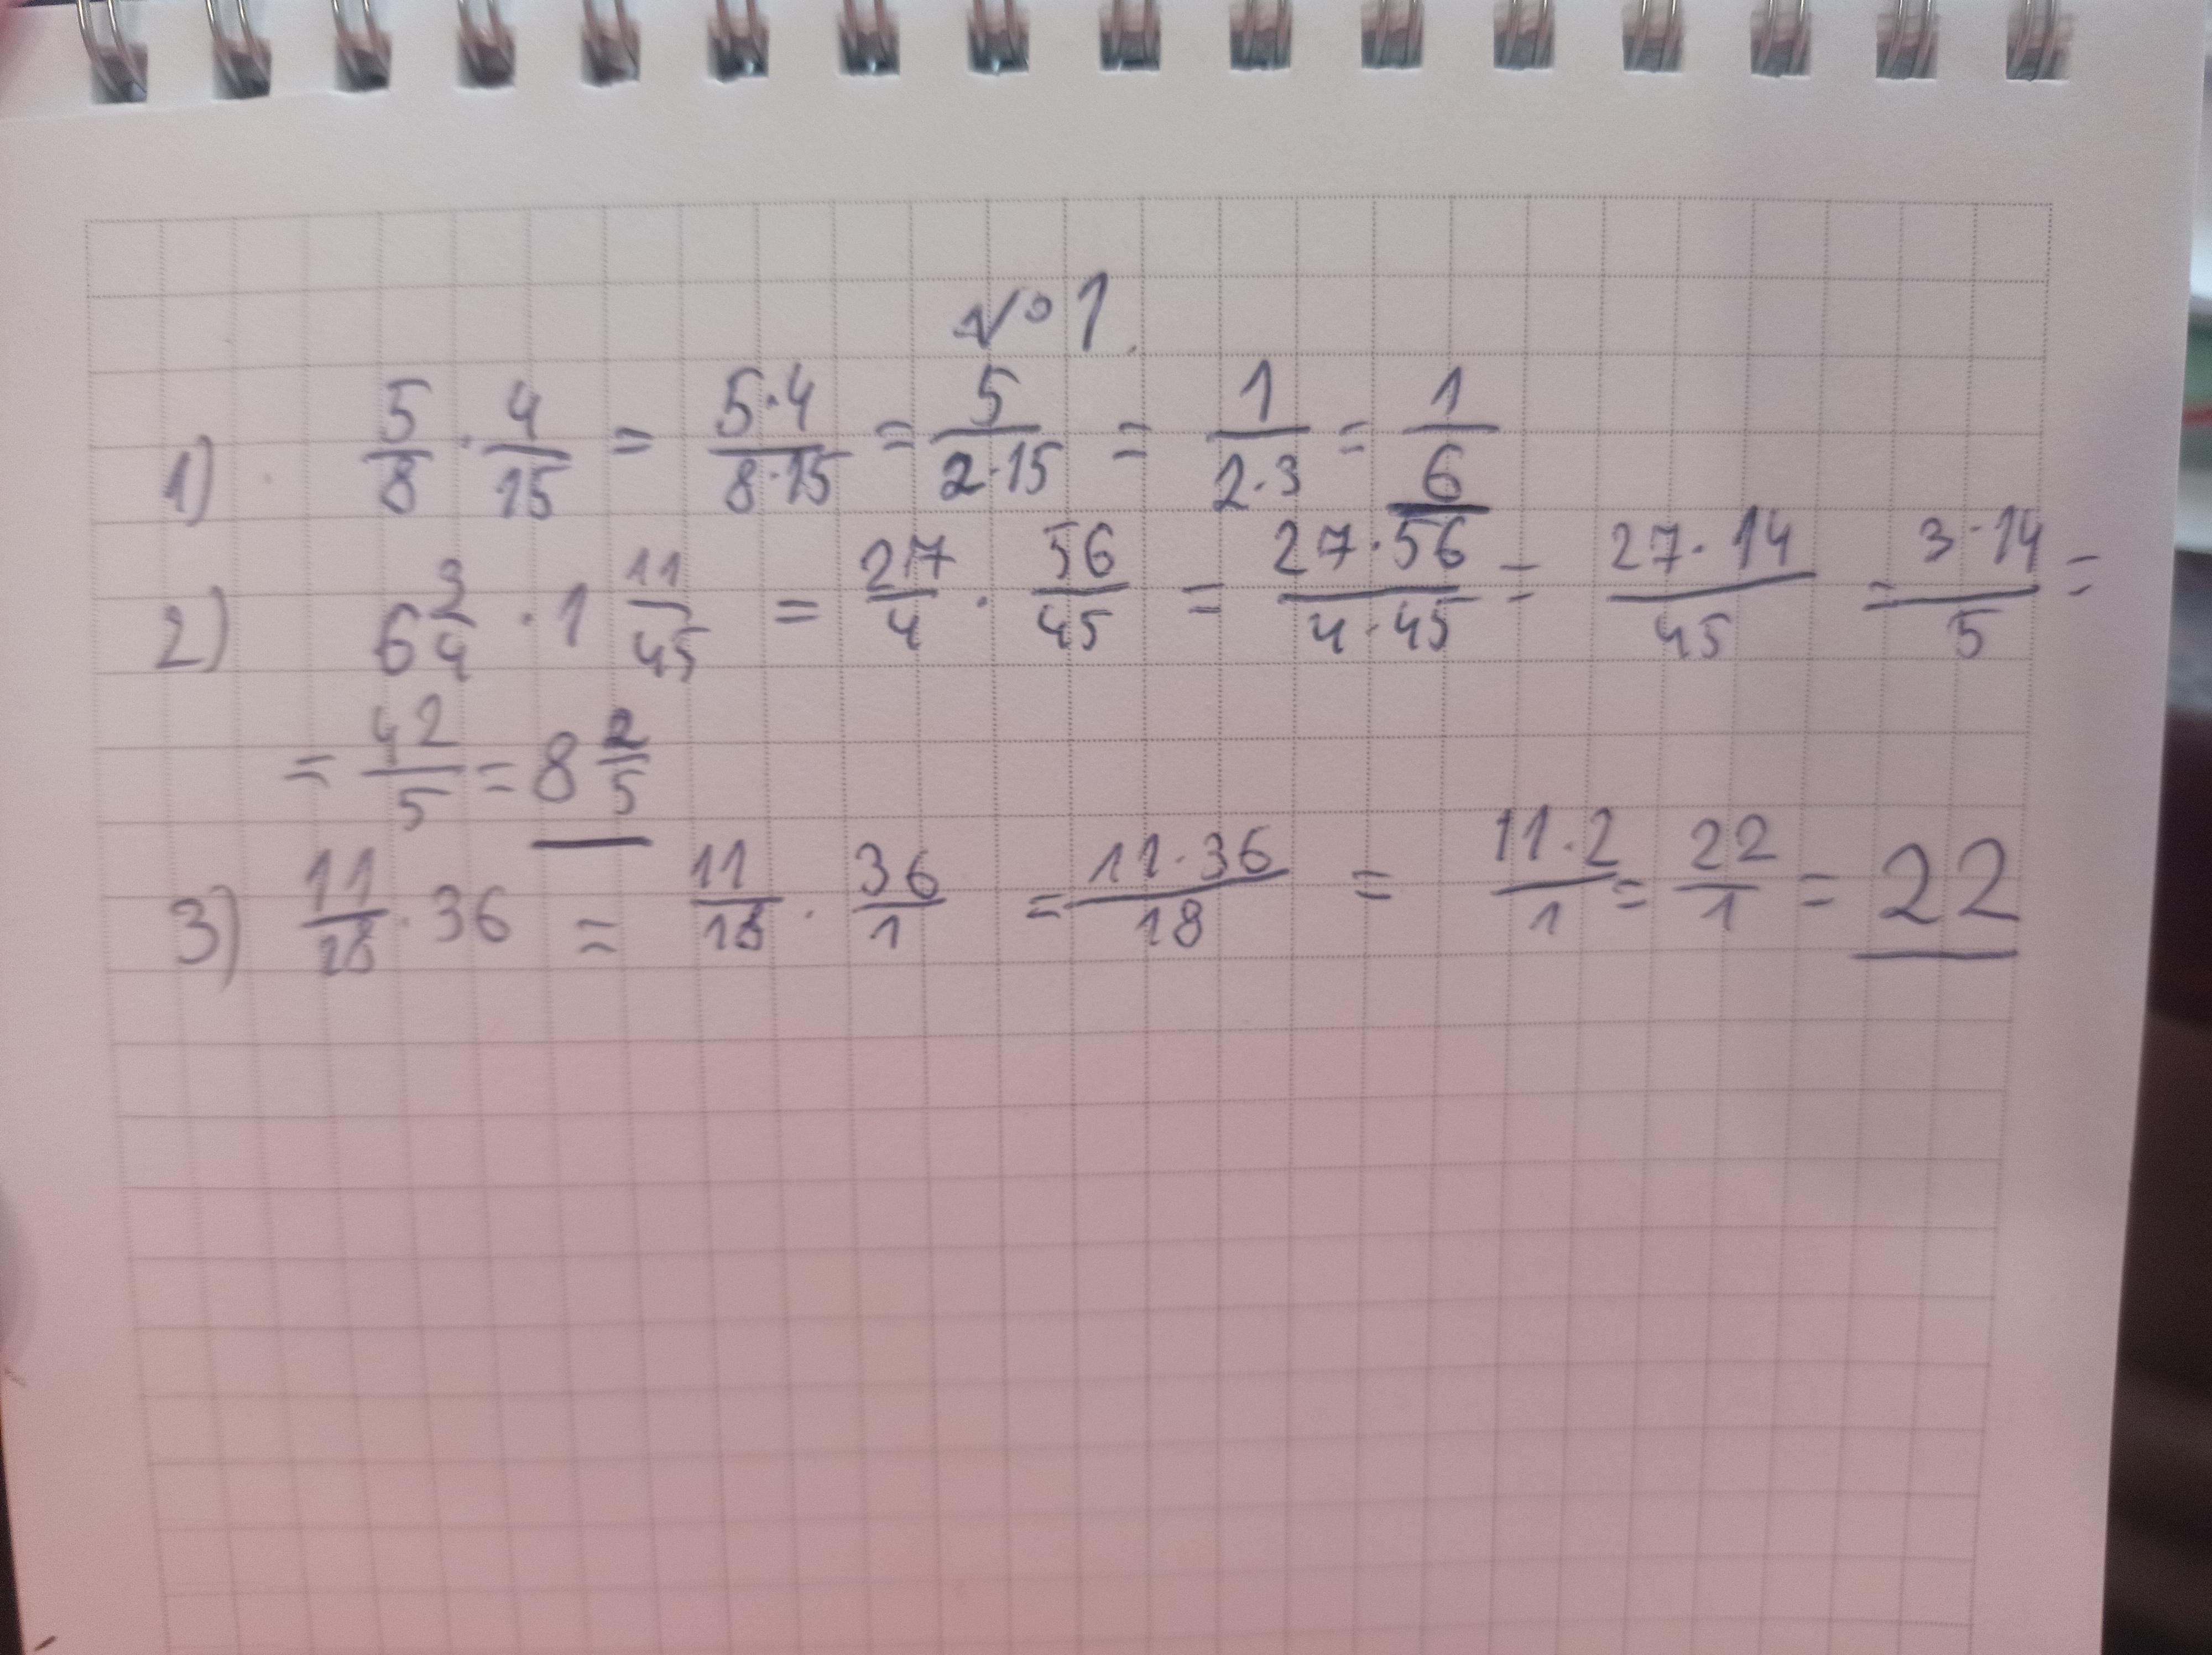 №1.
1) 5/8 · 4/15 = 5·4/8·15 = 5/2·15 = 1/2·3 = 1/6
2) 6 3/4 · 1 11/45 = 27/4 · 56/45 = 27·56/4·45 = 27·14/45 = 3·14/5 =
= 42/5 = 8 2/5
3) 11/18 · 36 = 11/18 · 36/1 = 11·36/18 = 11·2/1 = 22/1 = 22